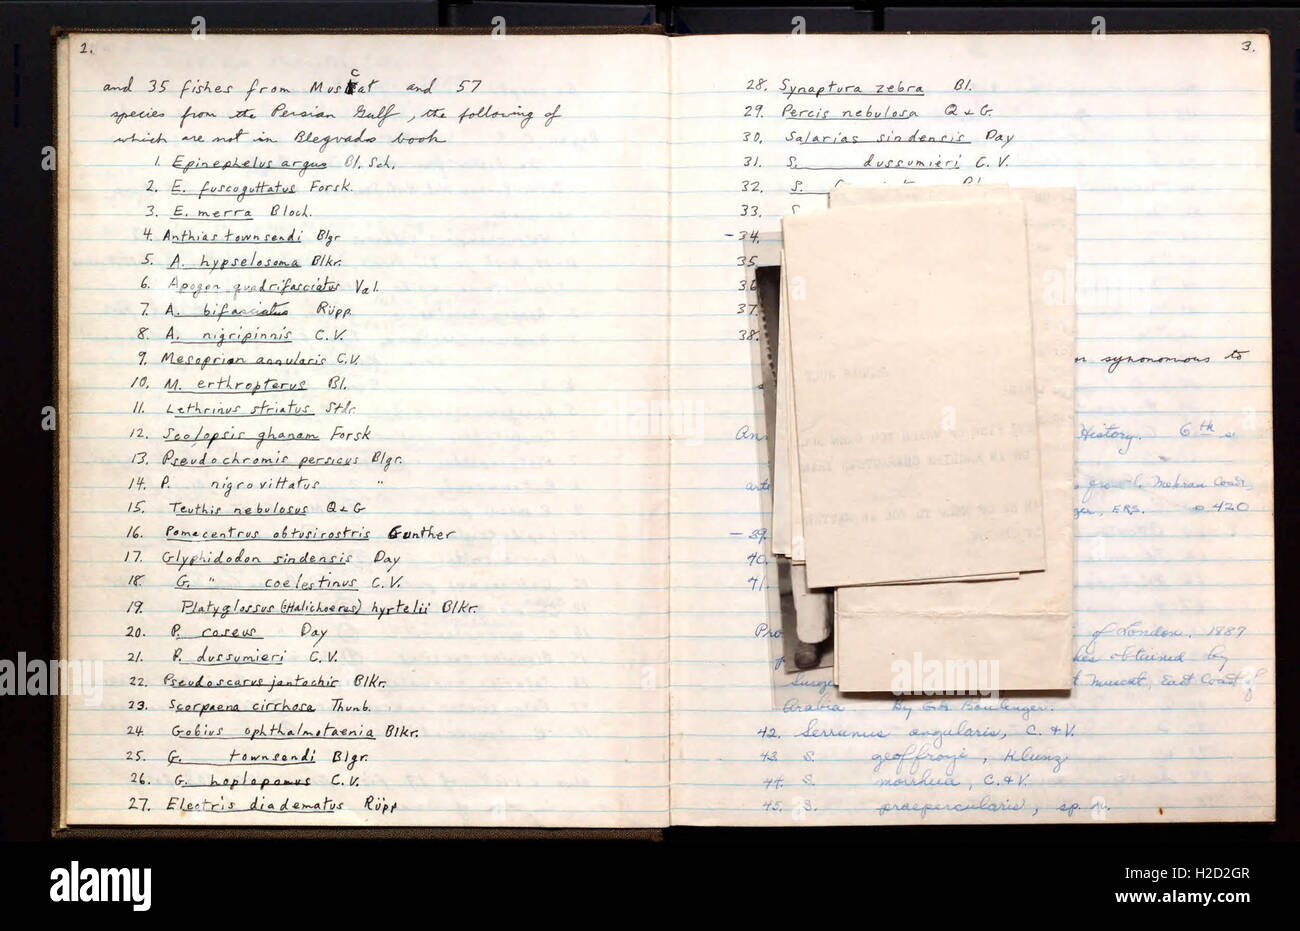 2.
and 35 fishes from Muscat and 57
species from the Persian Gulf, the following of
which are not in Blegvads book
1. Epinephelus argus Bl. Sch.
2. E. fuscoguttatus Forsk.
3. E. merra Bloch.
4. Anthias townsendi Blgr
5. A. hypselosoma Blkr.
6. Apogon quadrifasciatus Val.
7. A. bifasciatus Rüpp
8. A. nigripinnis C.V.
9. Mesoprion annularis C.V.
10. M. erthropterus Bl.
11. Lethrinus striatus Stdr.
12. Scolopsis ghanam Forsk
13. Pseudochromis persicus Blgr.
14. P. nigrovittatus "
15. Teuthis nebulosus Q & G
16. Pomacentrus obtusirostris Gunther
17. Glyphidodon sindensis Day
18. G. " coelestinus C.V.
19. Platyglossus (Halichoeres) hyrtelii Blkr.
20. P. caseus Day
21. P. dussumieri C.V.
22. Pseudoscarus jantochir Blkr.
23. Scorpaena cirrhosa Thunb.
24. Gobius ophthalmotaenia Blkr.
25. G. townsendi Blgr.
26. G. hoplopomus C.V.
27. Electris diadematus Rüpp
3.
28. Synaptura zebra Bl.
29. Percis nebulosa Q & G.
30. Salarias sindensis Day
31. S. dussumieri C.V.
32. S.
33. S
-34.
35
36
37.
38.
synonomous to
History. 6th s
Mekran Coast,
ERS. p 420
-39.
40.
41.
Pro of London, 1887
obtained by
Muscat, East Coast of
Arabia By G.A. Boulenger.
42. Serranus angularis, C. & V.
43. S. geoffroyi, Klunz
44. S. morrhua, C. & V.
45. S. praepercularis, sp. n.
alamy
alamy stock photo
H2D2GR
www.alamy.com